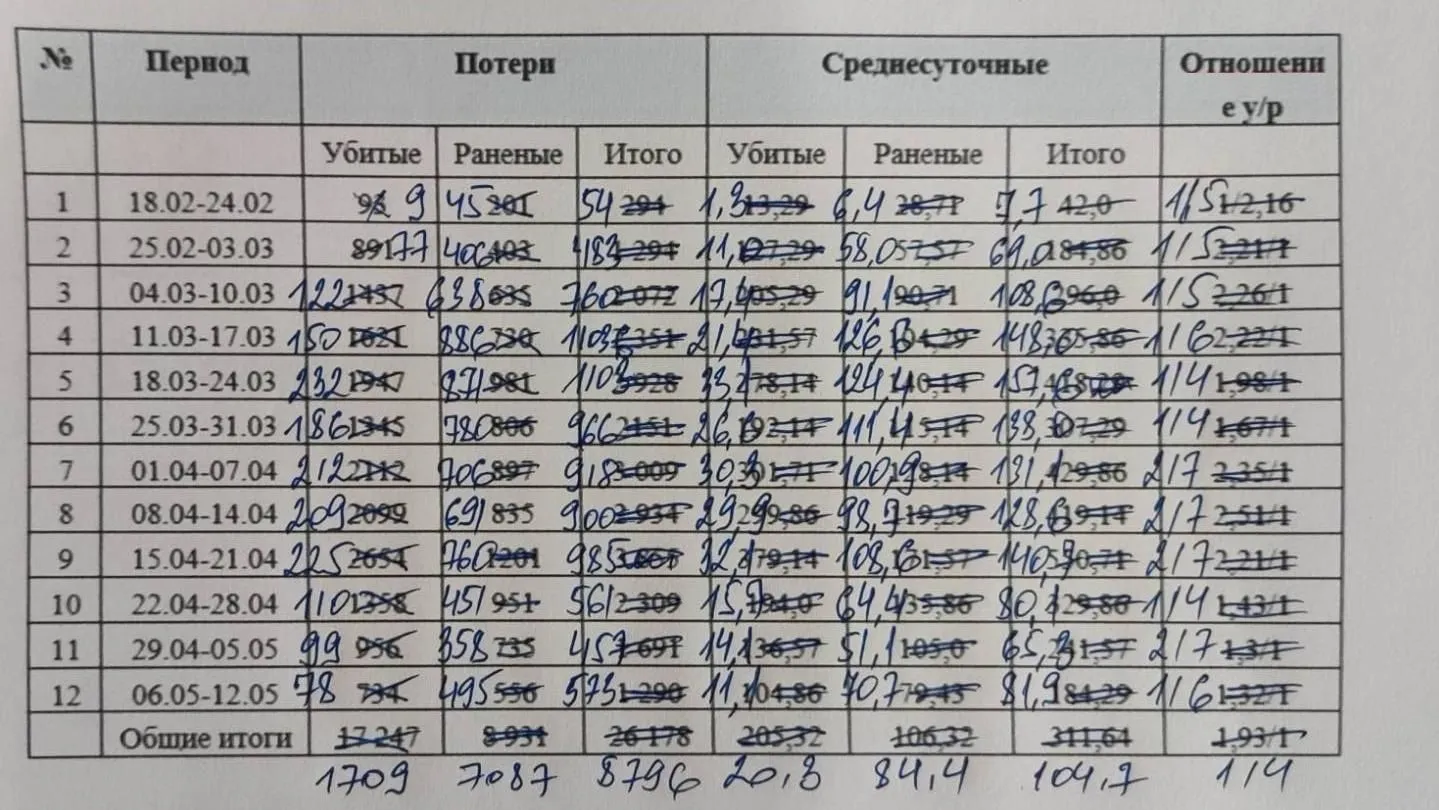 № Период Потери Среднесуточные Отношени
е у/р
Убитые Раненые Итого Убитые Раненые Итого
1 18.02-24.02 9 45 201 54 294 1,3 13,29 6,4 28,71 7,7 42,0 1/5 1/2,16
2 25.02-03.03 89 77 406 403 483 294 11, 27,29 58,0 57,57 69,0 184,86 1/5 2,21/1
3 04.03-10.03 122 1437 638 635 760 2 072 17,4 05,29 91,1 90,71 108,6 96,0 1/5 2,26/1
4 11.03-17.03 150 1621 886 730 1036 2 351 21,4 31,57 126,6 04,29 148,0 35,86 1/6 2,22/1
5 18.03-24.03 232 1947 871 981 1103 928 33,1 78,14 124,4 40,14 157,6 1/4 1,98/1
6 25.03-31.03 186 1345 780 806 966 2151 26,6 92,14 111,4 15,14 138, 07,29 1/4 1,67/1
7 01.04-07.04 212 2112 706 897 918 3 009 30,3 01,71 100,9 28,14 131,1 29,86 2/7 2,35/1
8 08.04-14.04 209 2099 691 835 900 2 934 29,9 299,86 98,7 19,29 128,6 19,14 2/7 2,51/1
9 15.04-21.04 225 2654 760 1201 985 32,1 79,14 108,6 71,57 140,7 50,71 2/7 2,21/1
10 22.04-28.04 110 1358 451 951 561 2 309 15,7 194,0 64,4 135,86 80,1 29,86 1/4 1,43/1
11 29.04-05.05 99 956 358 735 457 1 691 14,1 36,57 51,1 105,0 65,3 41,57 2/7 1,3/1
12 06.05-12.05 78 734 495 556 573 1 290 11,1 104,86 70,7 79,43 81,9 84,29 1/6 1,32/1
Общие итоги 17 247 8 931 26 178 205,32 106,32 311,64 1,93/1
1709 7087 8796 20,3 84,4 104,7 1/4